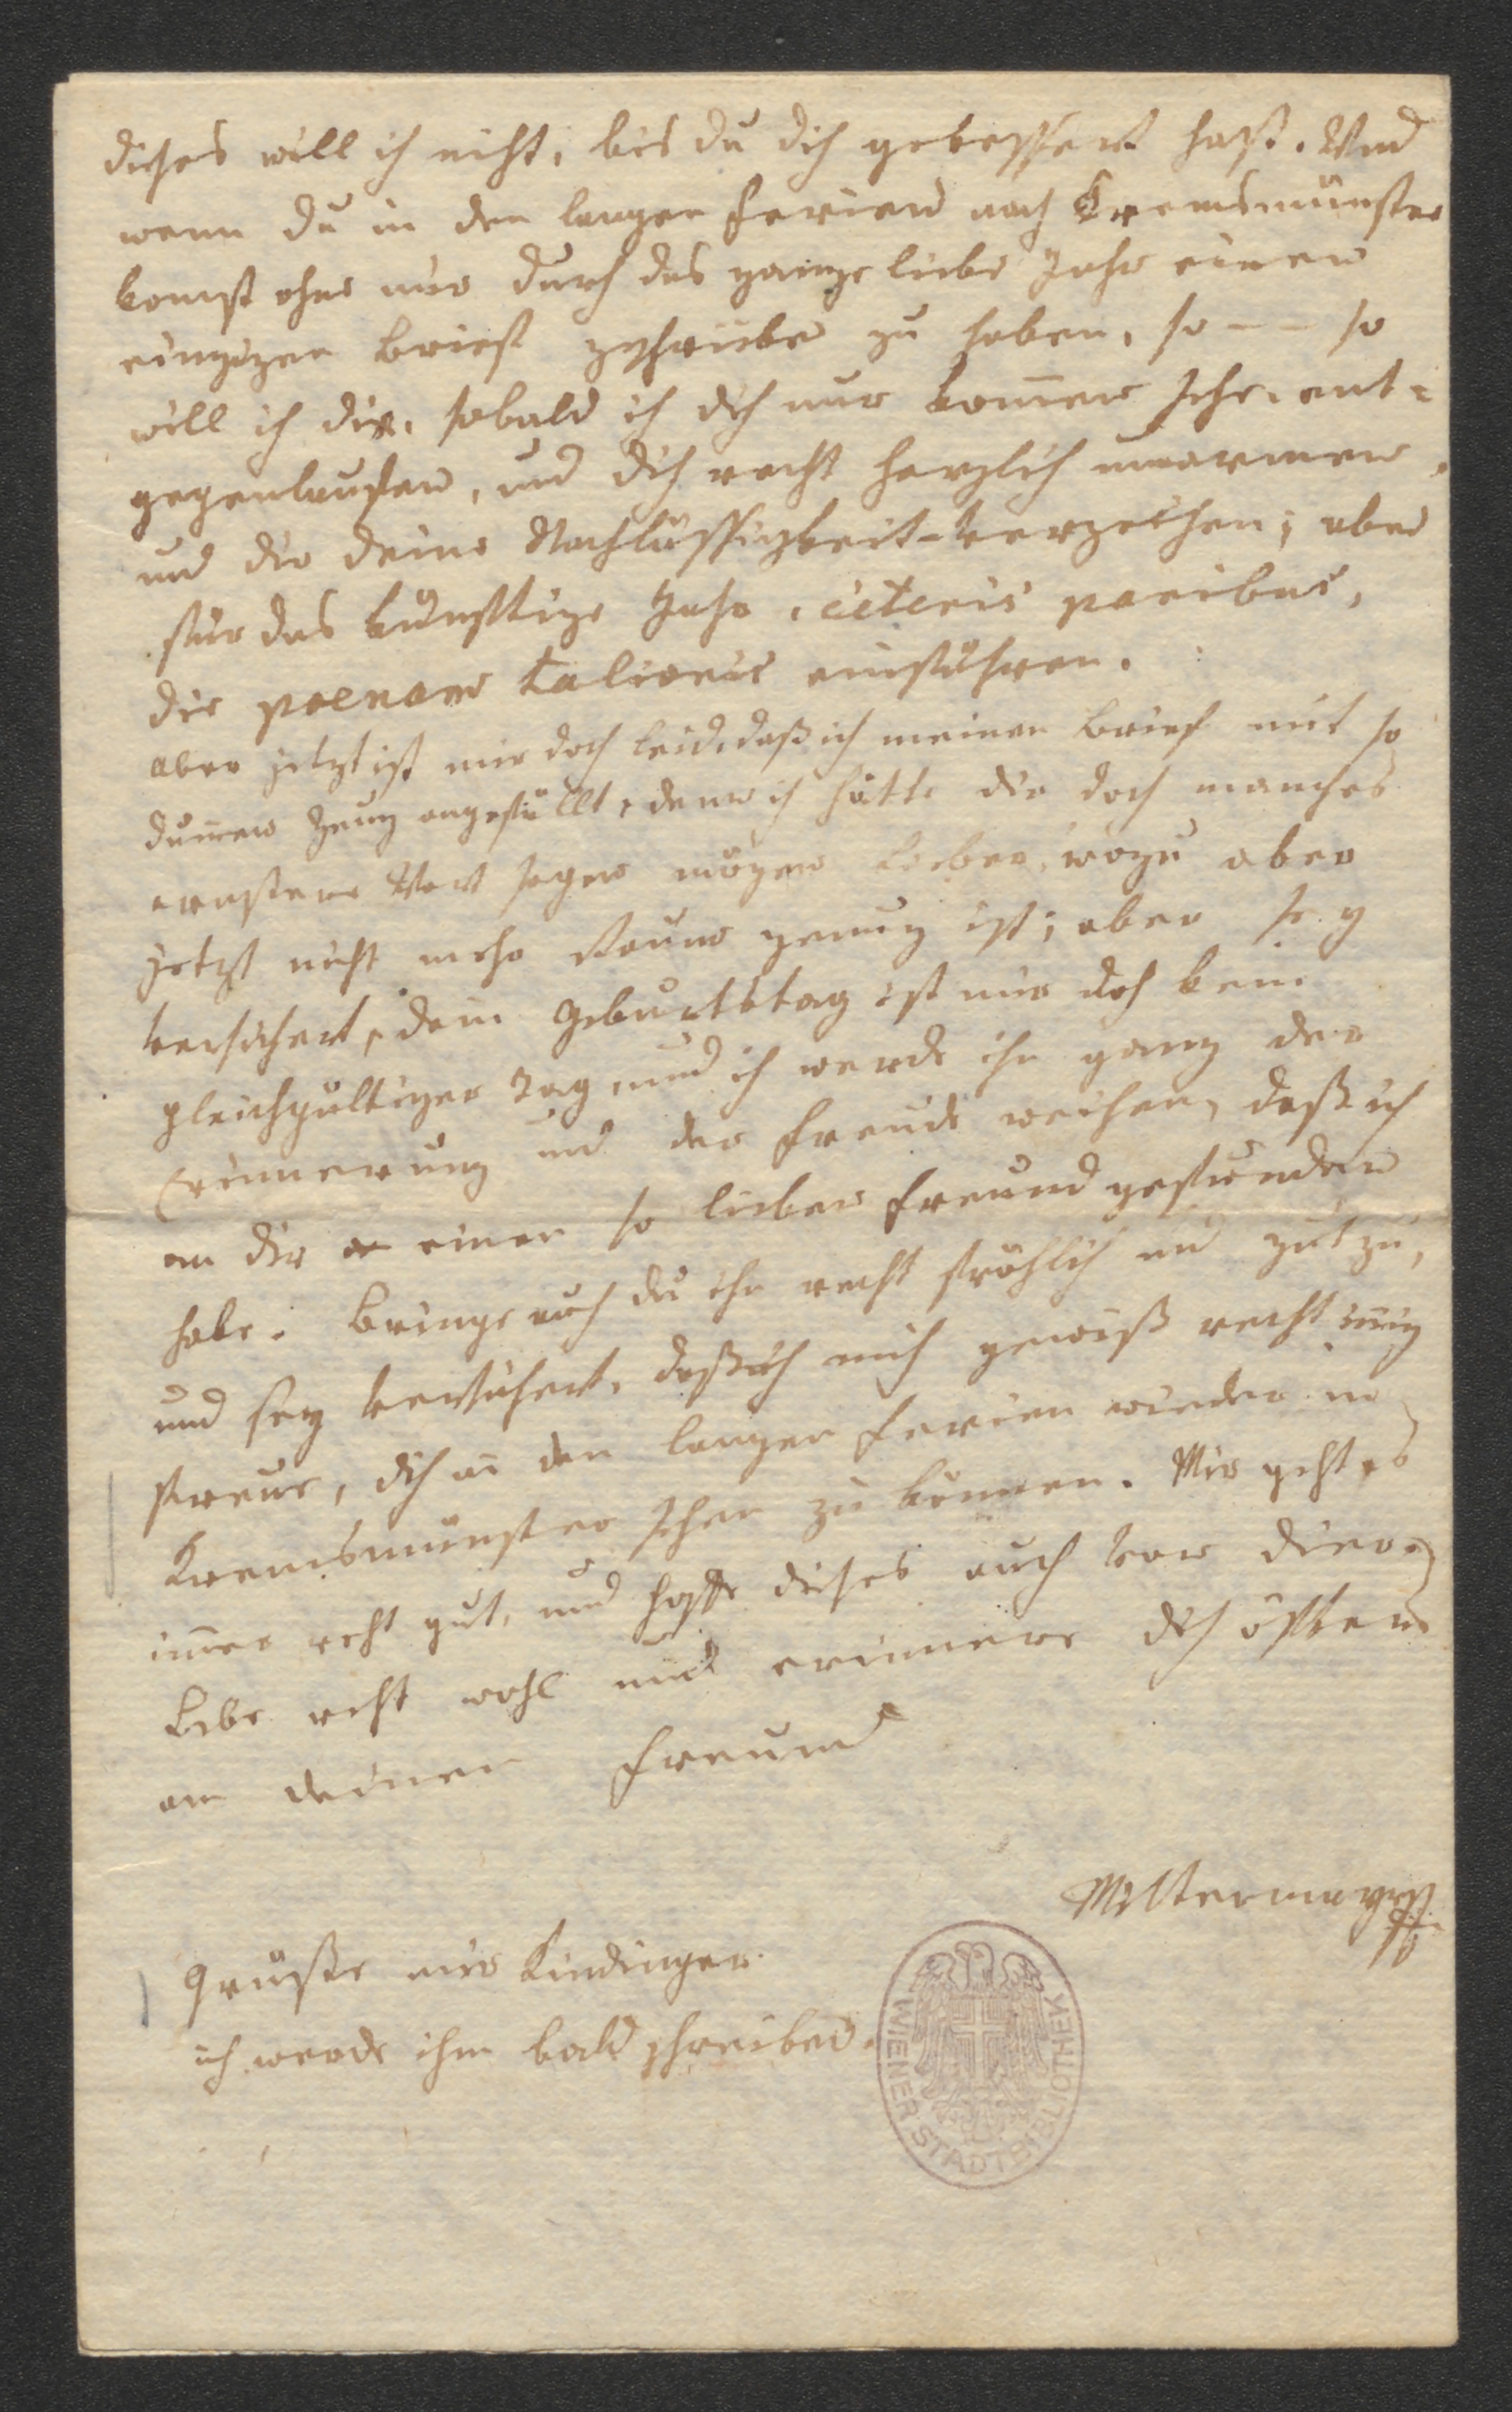 dieses will ich nicht, bis du dich gebessert hast. Und
wenn du in den langen Ferien nach Kremsmünster
komst ohne mir durch das ganze liebe Jahr einen
einzigen Brief geschrieben zu haben, so -- so
will ich dir, sobald ich dich nur kom̄en sehe, ent=
gegenlaufen, und dich recht herzlich umarmen,
und dir deine Nachlässigkeit verzeihen; aber
für das künftige Jahr, ceteris paribus,
die poenam talionis einführen.
Aber jetzt ist mir doch leid, daß ich meinen Brief mit so
dum̄en Zeug angefüllt, denn ich hätte dir doch manches
ernstere Wort sagen mögen Lieber, wozu aber
jetzt nicht mehr Raum genug ist; aber sey
versichert, dein Geburtstag ist mir doch kein
gleichgültiger Tag, und ich werde ihn ganz der
Erinnerung und der Freude weihen, daß ich
an dir einen so lieben Freund gefunden
habe. Bringe auch du ihn recht fröhlich und gut zu,
und sey versichert, daß ich mich gewiß recht in̄ig
freue, dich in den langen Ferien wieder in
Kremsmünster sehen zu können. Mir geht es
im̄er recht gut, und hoffe dieses auch von dir.
Lebe recht wohl und erinnere dich öfters
an deinen Freund
Mittermayr
Grüße mir Kindinger
ich werde ihm bald schreiben.
WIENER STADTBIBLIOTHEK